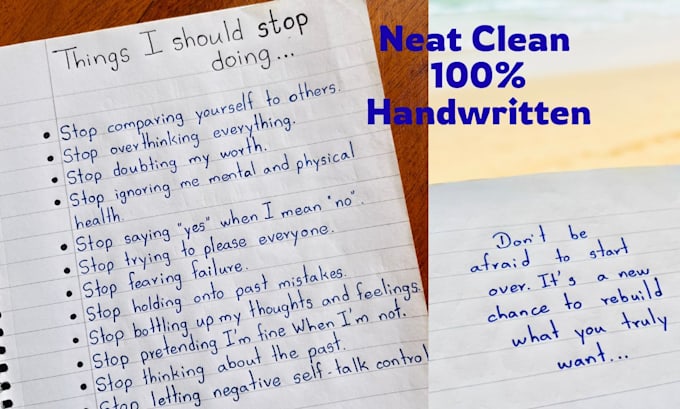 Things I should stop
doing...
• Stop comparing yourself to others.
• Stop overthinking everything.
• Stop doubting my worth.
• Stop ignoring me mental and physical
health.
• Stop saying "yes" when I mean "no".
• Stop trying to please everyone.
• Stop fearing failure.
• Stop holding onto past mistakes.
• Stop bottling up my thoughts and feelings.
• Stop pretending I'm fine When I'm not.
• Stop thinking about the past.
• Stop letting negative self-talk control
Neat Clean
100%
Handwritten
Don't be
afraid to start
over. It's a new
chance to rebuild
what you truly
want...